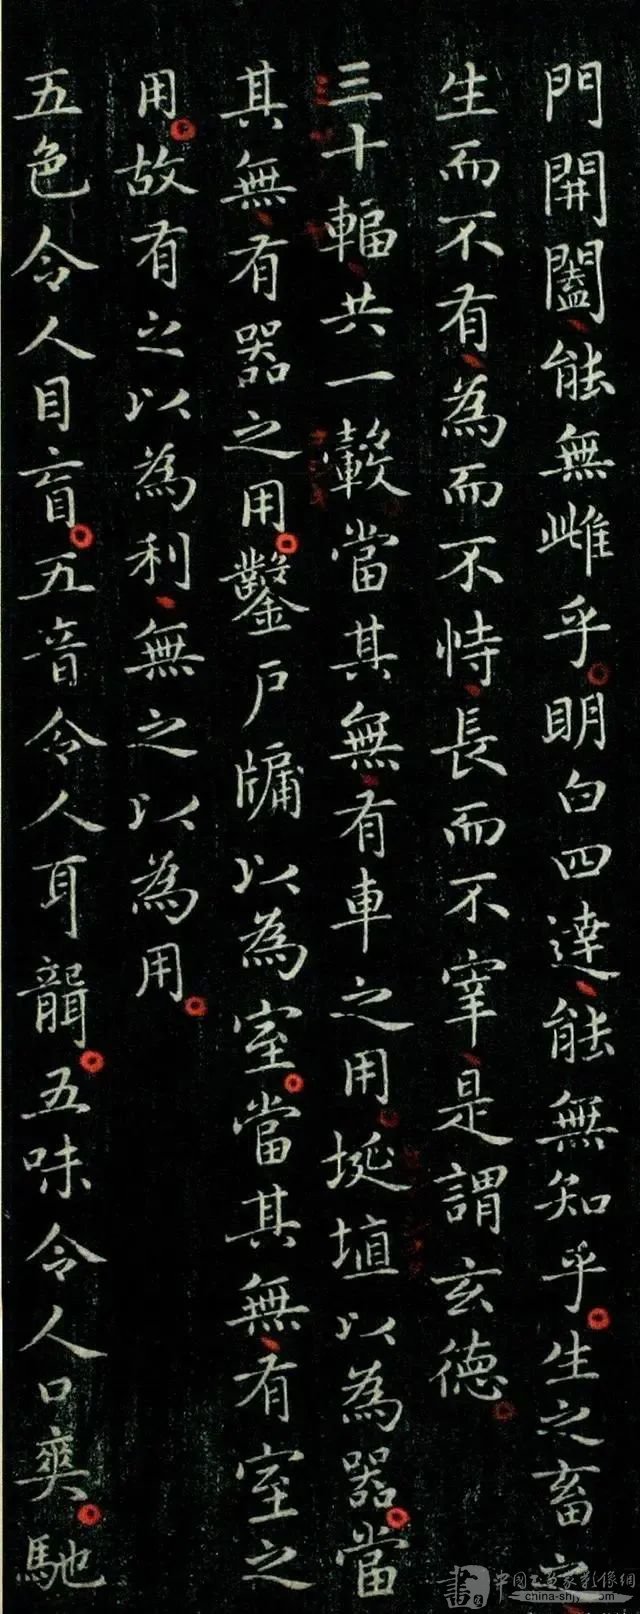 門開闔能無雌乎明白四達能無知乎生之畜之
生而不有為而不恃長而不宰是謂玄德
三十輻共一轂當其無有車之用埏埴以為器當
其無有器之用鑿戶牖以為室當其無有室之
用故有之以為利無之以為用
五色令人目盲五音令人耳聾五味令人口爽馳
中国书画家影像网
china-shjy.com